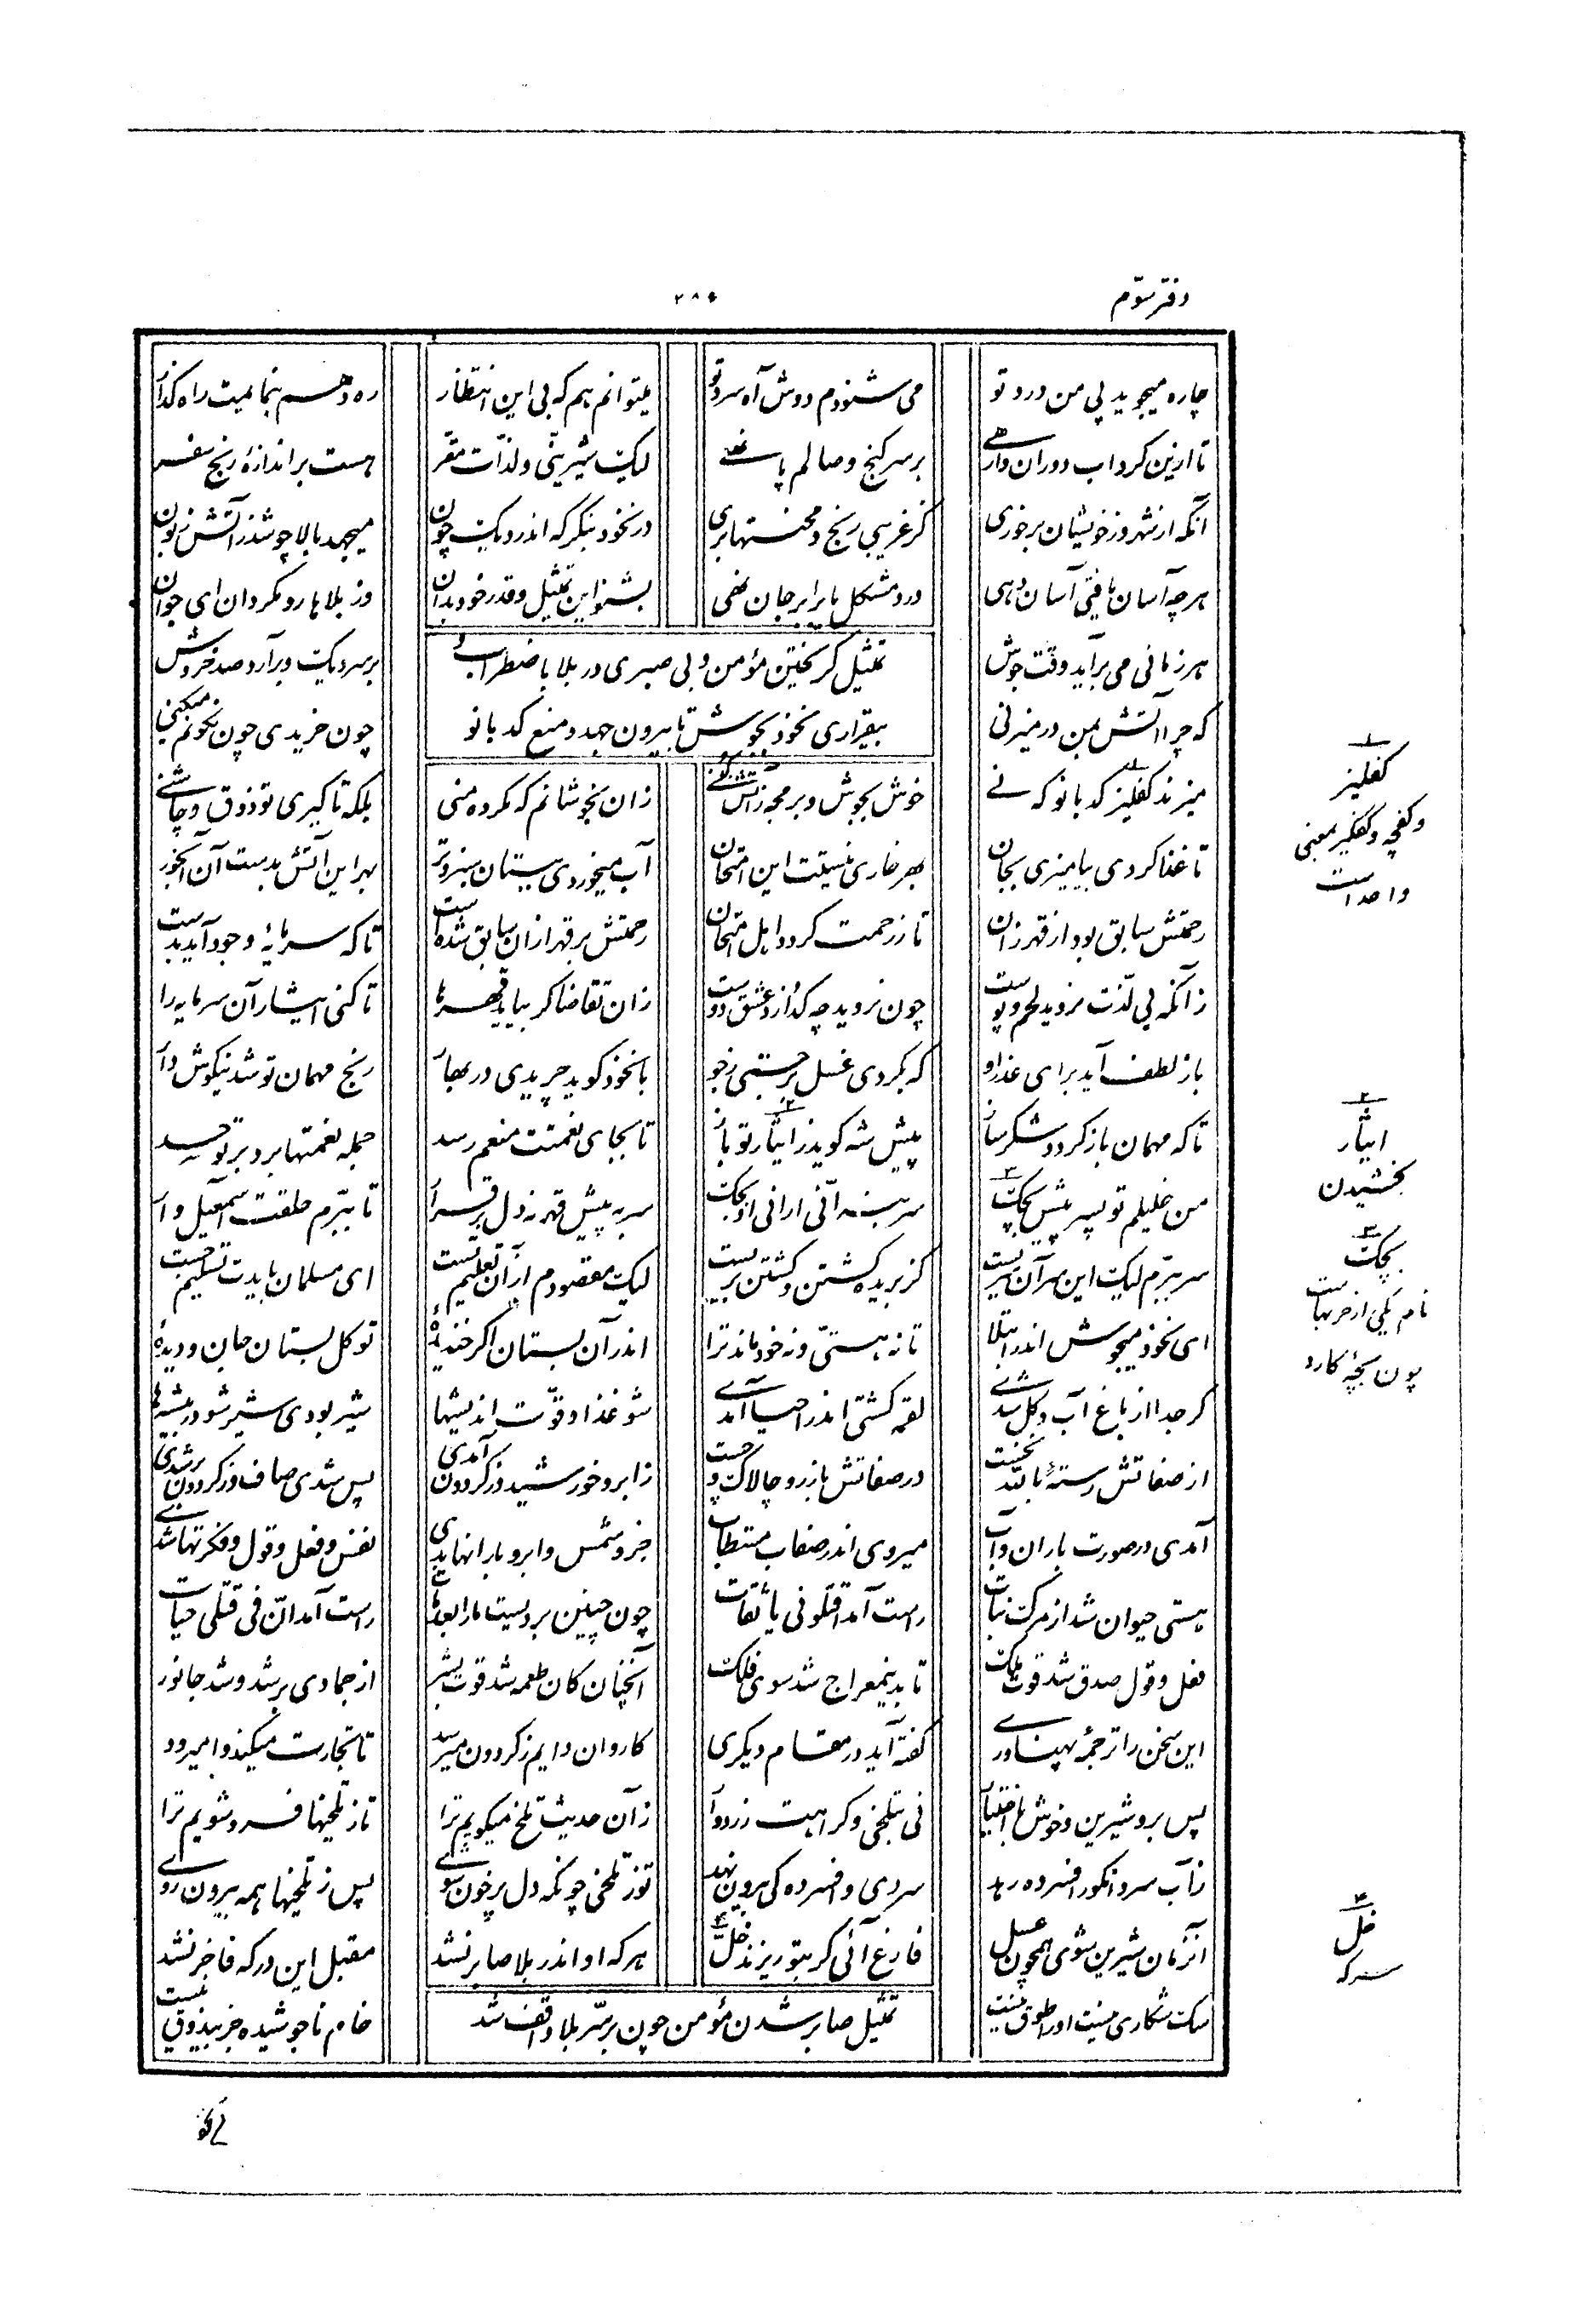 دفتر سوّم
۲۸۶
چاره میجوید پی من درد تو   می شنودم دوش آه سرد تو   میتوانم هم که بی این انتظار   ره دهم بنمایمت راه گذار
تا ازین گرداب دوران وارهی   بر سر گنج وصالم پا نهی   لیک شیرینی و لذّات مقر   هست بر اندازهٔ رنج سفر
آنگه از شهر و ز خویشان برخوری   کز غریبی رنج و محنتها بری   در نخود بنگر که اندر دیک چون   میجهد بالا چو شد ز آتش زبون
هر چه آسان یافتی آسان دهی   درد مشکل یا برابر جان نهی   بشنو این تمثیل و قدر خود بدان   وز بلاها رو مگردان ای جوان
تمثیل گریختن مؤمن و بی صبری در بلا باضطراب و
بیقراری نخود بجوش تا بیرون جهد و منع کدبانو
هر زمانی می برآید وقت جوش   بر سر دیک و برآرد صد خروش
که چرا آتش بمن در میزنی   چون خریدی چون نگونم میکنی
میزند کفلیز کدبانو که نی   خوش بجوش و بر مجه ز آتش کنی   زان نجوشانم که مکروه منی   بلکه تا گیری تو ذوق و چاشنی
تا غذا گردی بیامیزی بجان   بهر خاری نیستت این امتحان   آب میخوردی ببستان سبز و تر   بهر این آتش بدست آن آبخور
رحمتش سابق بود از قهر زان   تا ز رحمت گردد اهل امتحان   رحمتش بر قهر از آن سابق شده است   تا که سرمایهٔ وجود آید بدست
زآنکه بی لذّت نروید لحم و پوست   چون نروید چه گدازد عشق دوست   زان تقاضا گر بیاید قهرها   تا کنی ایثار آن سرمایه را
باز لطف آید برای عذر او   که بکردی غسل بر جستی ز جو   با نخود گوید چریدی در بهار   رنج مهمان تو شد نیکوش دار
تا که مهمان باز گردد شکر ساز   پیش شه گوید ز ایثار تو باز   تا بجای نعمتت منعم رسد   جمله نعمتها برد بر تو حسد
من خلیلم تو پسر پیش بچک   سر بنه انّی ارانی اذبحک   سر به پیش قهر نه دل برقرار   تا ببرّم حلقت اسمعیل وار
سر ببرّم لیک این سر آن سریست   کز بریده گشتن و کشتن بریست   لیک مقصودم از آن تعلیم تست   ای مسلمان بایدت تسلیم جست
ای نخود میجوش اندر ابتلا   تا نه هستی و نه خود ماند ترا   اندر آن بستان اگر خندیدهٔ   تو گل بستان جان و دیدهٔ
گر جدا از باغ آب و گل شدی   لقمه گشتی اندر احیا آمدی   شو غذا و قوّت اندیشها   شیر بودی شیر شو در بیشه‌ها
از صفاتش رستهٔ بالله نخست   در صفاتش باز رو چالاک و چست   ز ابر و خورشید و ز گردون آمدی   پس شدی صاف و ز گردون بر شدی
آمدی در صورت باران و آب   میروی اندر صفات مستطاب   جزو شمس و ابر و بارانها بدی   نفس و فعل و قول و فکرتها شدی
هستی حیوان شد از مرگ نبات   راست آمد اقتلونی یا ثقات   چون چنین بردیست ما را بعد مات   راست آمد انّ فی قتلی حیات
فعل و قول صدق شد قوت ملک   تا بدین معراج شد سوی فلک   آنچنان کان طعمه شد قوت بشر   از جمادی بر شد و شد جانور
این سخن را ترجمهٔ پهناوری   گفته آید در مقام دیگری   کاروان دایم ز گردون میرسد   تا تجارت میکند وامیرود
پس برو شیرین و خوش با اختیار   نی بتلخی و کراهت دزدوار   زآن حدیث تلخ میگویم ترا   تا ز تلخیها فرو شویم ترا
ز آب سرد انگور افسرده رهد   سردی و افسردگی بیرون نهد   تو ز تلخی چونکه دل پر خون شوی   پس ز تلخیها همه بیرون روی
آنزمان شیرین شوی همچون عسل   فارغ آئی گر بتو ریزند خلّ   هر که او اندر بلا صابر نشد   مقبل این درگه فاخر نشد
تمثیل صابر شدن مؤمن چون بر سرّ بلا واقف شد
سگ شکاری نیست او را طوق نیست   خام ناجوشیده جز بیذوق نیست
۱
کفلیز
و کفچه و کفگیر بمعنی
واحد است
۲
ایثار
بخشیدن
۳
بچک
نام یکی از حربهاست
چون بچهٔ کارد
۴
خل
سرکه